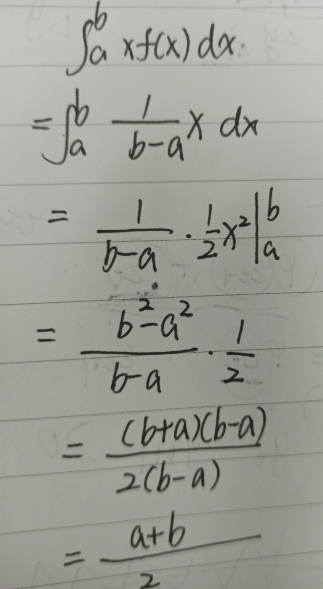 ∫_a^b xf(x) dx.
= ∫_a^b 1/(b-a) x dx
= 1/(b-a) · 1/2 x² |_a^b
= (b²-a²)/(b-a) · 1/2
= (b+a)(b-a)/2(b-a)
= (a+b)/2